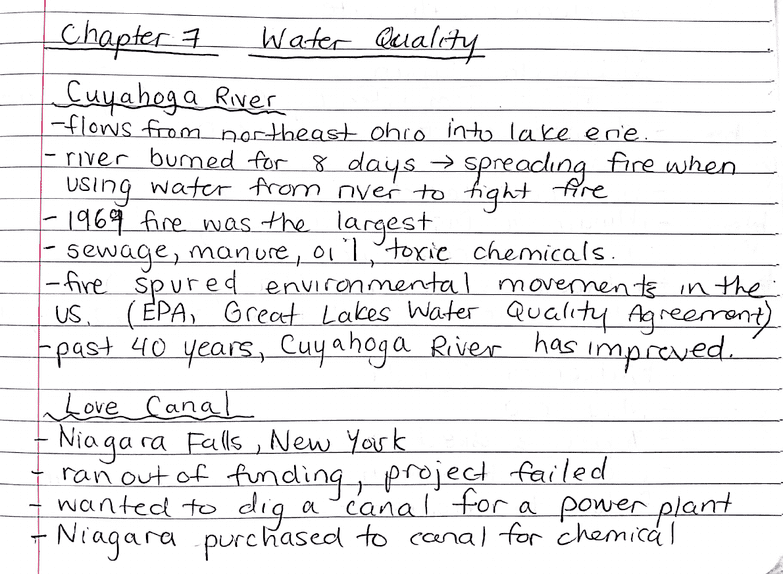 Chapter 7 Water Quality
Cuyahoga River
-flows from northeast ohio into lake erie.
- river burned for 8 days → spreading fire when
using water from river to fight fire
- 1969 fire was the largest
- sewage, manure, oil, toxic chemicals.
-fire spured environmental movements in the
US. (EPA, Great Lakes Water Quality Agreement)
-past 40 years, Cuyahoga River has improved.
Love Canal
- Niagara Falls, New York
- ran out of funding, project failed
- wanted to dig a canal for a power plant
- Niagara purchased to canal for chemical